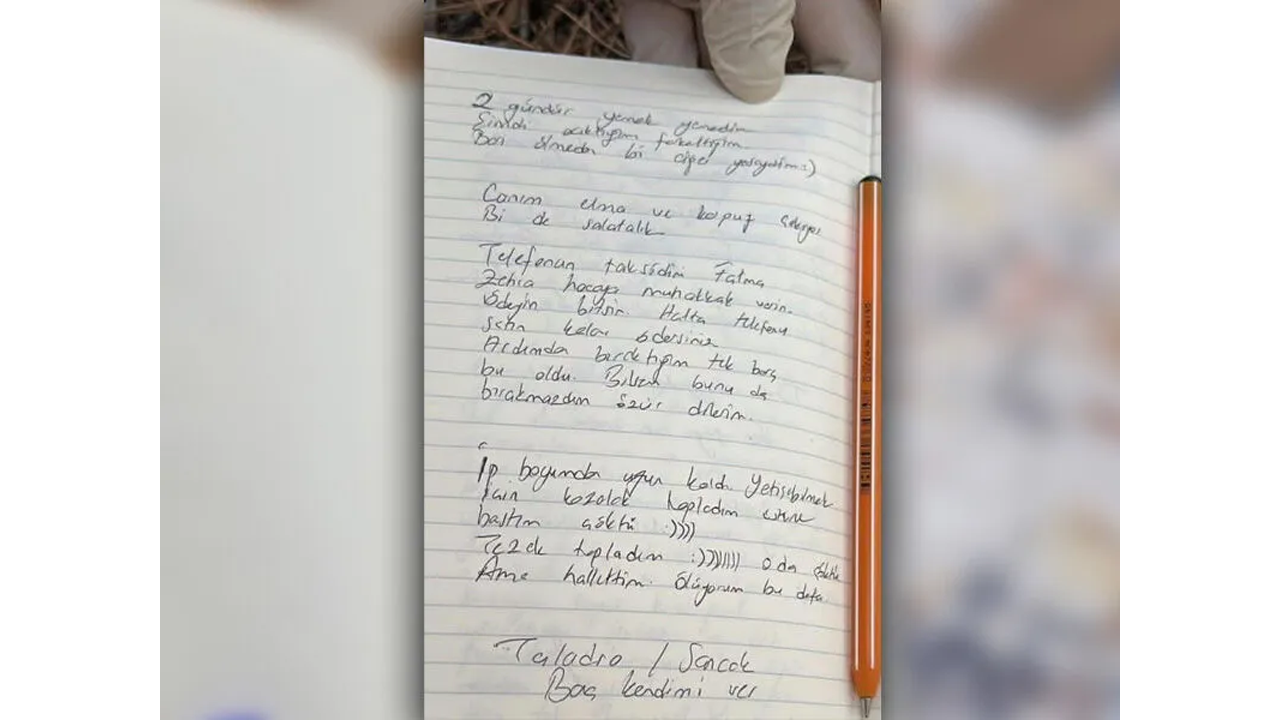 2 gündür yemek yemedim
Şimdi acıktığım farkettiğim.
Bari ölmeden bi ciğer yeseydim :)
Canım elma ve karpuz çekiyor
Bi de salatalık
Telefonun taksidini Fatma
Zehra hocaya muhakkak verin.
Ödeyin bitsin. Hatta telefonu
satın kalanı ödersiniz
Ardımda bıraktığım tek borç
bu oldu. Bilsem bunu da
bırakmazdım özür dilerim.
İp boyumdan uzun kaldı. Yetişebilmek
için kozalak topladım üstüne
bastım çöktü :))))
Tezek topladım :))))))) o da çöktü
Ama hallettim. Ölüyorum bu defa.
Taladro / Sancak
Baş kendimi ver